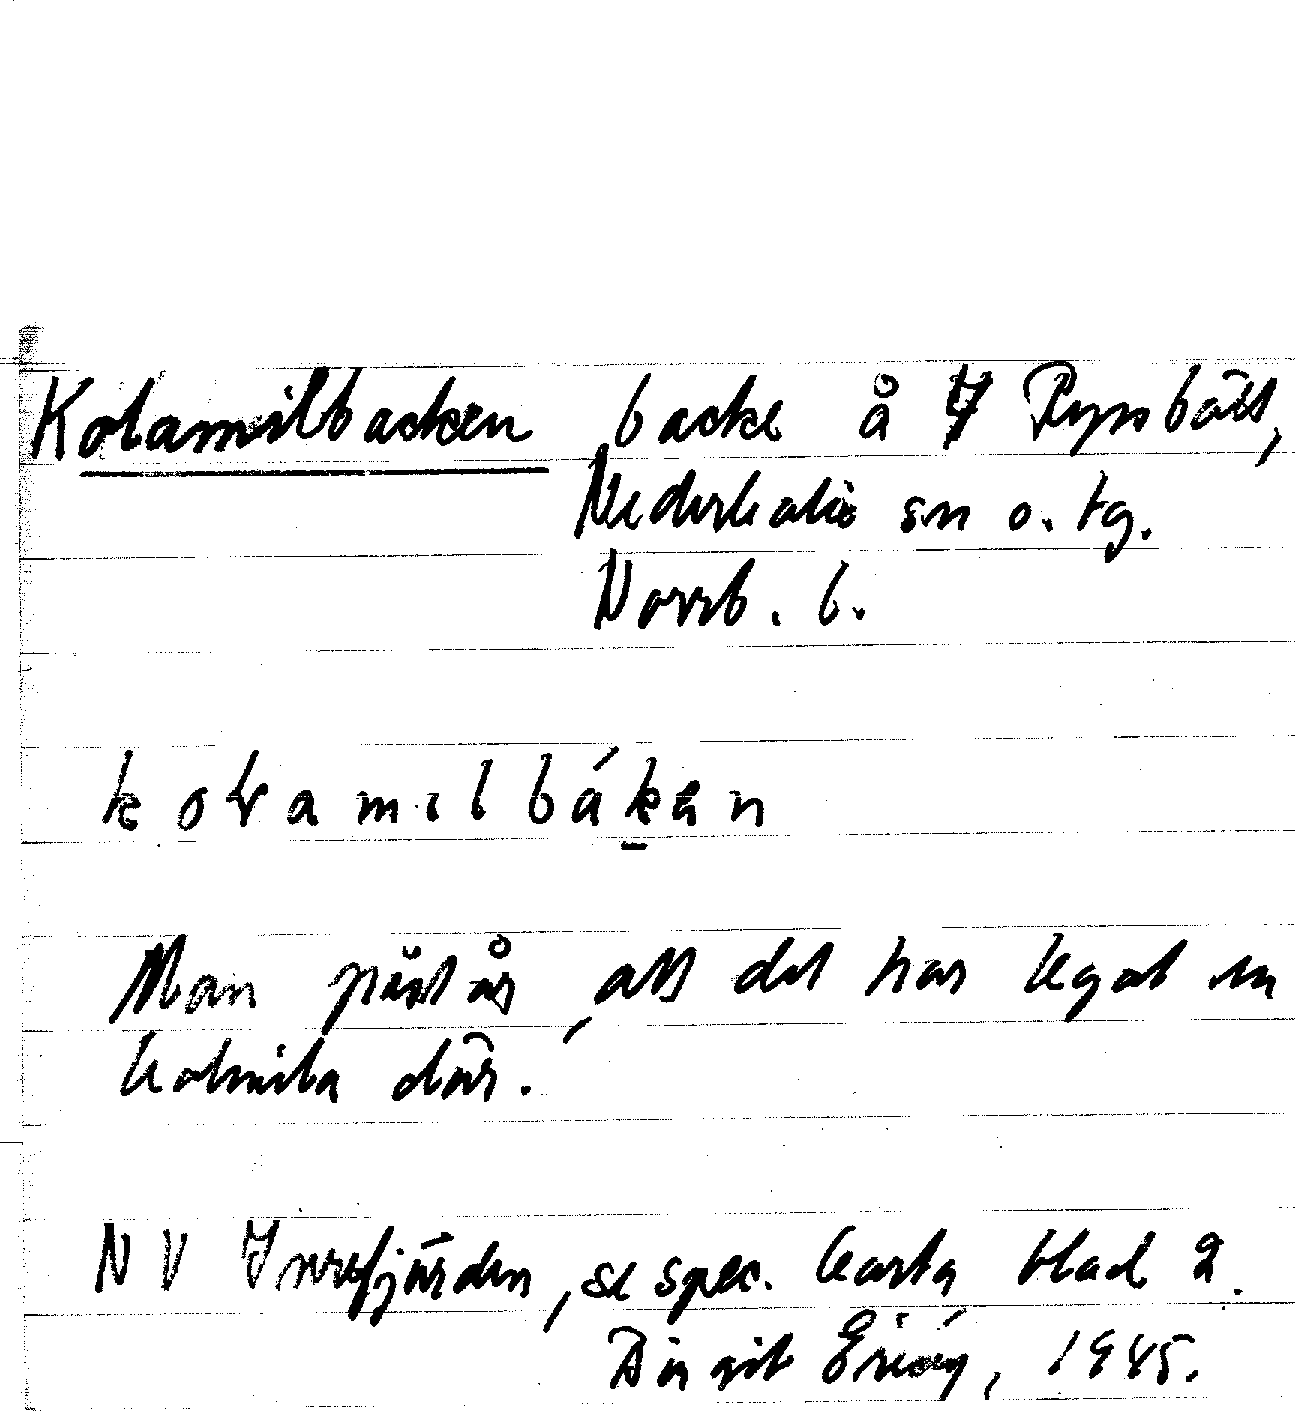 Kolamilbacken backe å
Nederkalix sn o. tg.
Norrb. l.
kolamilbáken
Man påstår, att det har legat en
kolmila där.
NV Innrefjärden, se spec. karta blad 2.
Birgit 1945.